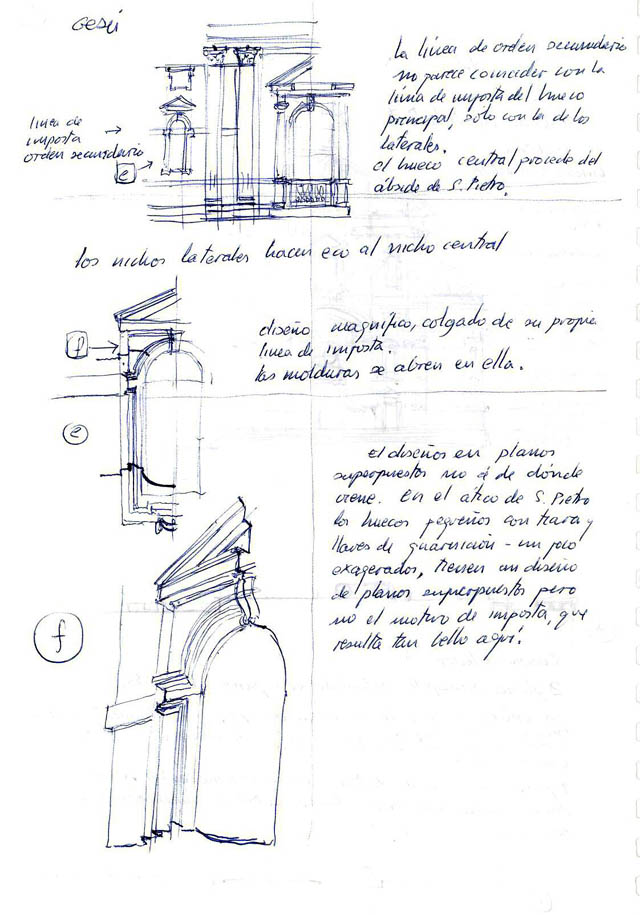 Gesú
la línea de orden secundario
no parece conceder con la
línea de imposta del hueco
principal, sólo con la de los
laterales.
el hueco central procede del
ábside de S. Pietro.
línea de
imposta
orden secundario
e
los nichos laterales hacen eco al nicho central
diseño magnífico, colgado de su propia
línea de imposta.
las molduras se abren en ella.
f
e
El diseños en planos
superpuestos no é de dónde
viene. En el ático de S. Pietro
los huecos pequeños con
llaves de guarnición - un poco
exagerados, tienen un diseño
de planos superpuestos pero
no el motivo de imposta, que
resulta tan bello aquí.
f